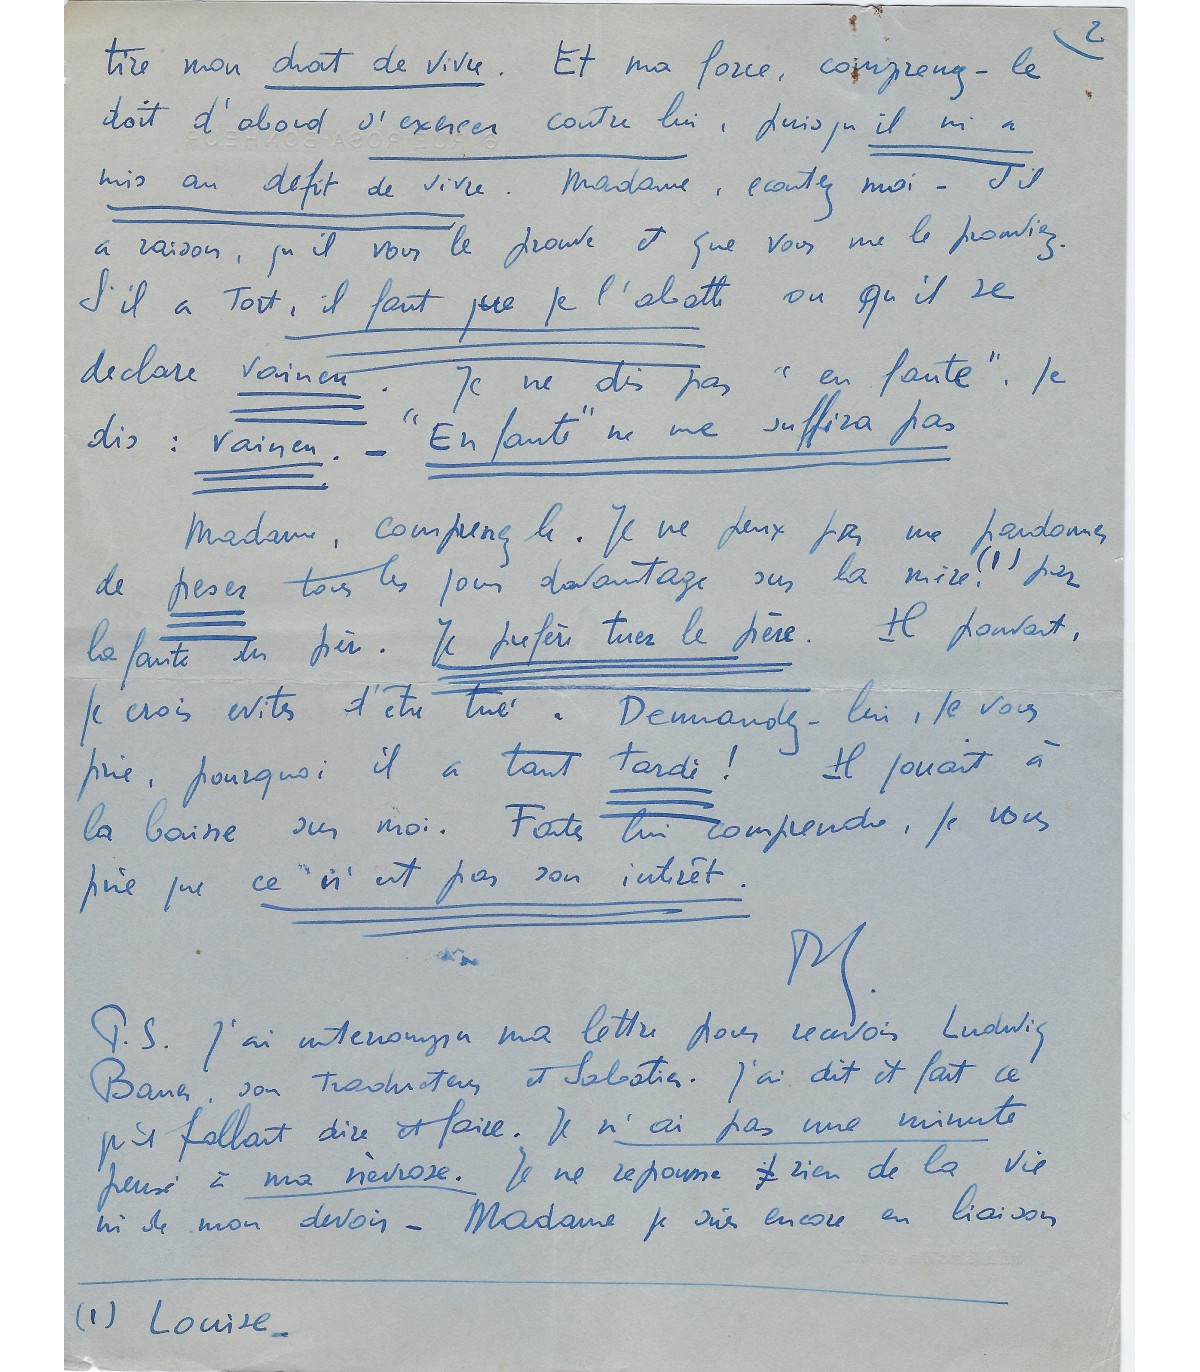 2
tire mon droit de vivre. Et ma force, comprenez-le
doit d'abord s'exercer contre lui, puisqu'il m'a
mis au defit de vivre. Madame, ecoutez moi - S'il
a raison, qu'il vous le prouve et que vous me le prouviez.
S'il a Tort, il faut que je l'abatte ou qu'il se
declare vaincu. Je ne dis pas "en faute". Je
dis : vaincu. - "En faute" ne me suffira pas
Madame, comprenez le. Je ne peux pas me pardonner
de peser tous les jours davantage sur la mère (1) par
la faute du père. Je prefère tuer le père. Il pouvait,
je crois eviter d'être tué. Demandez-lui, je vous
prie, pourquoi il a tant tardé ! Il jouait à
la baisse sur moi. Faites lui comprendre, je vous
prie que ce n'est pas son intérêt.
P.S. J'ai interrompu ma lettre pour recevoir Ludwig
Bauer, son traducteur et Sabatier. J'ai dit et fait ce
qu'il fallait dire et faire. Je n'ai pas une minute
pensé à ma nèvrose. Je ne repousse rien de la vie
ni de mon devoir - Madame je suis encore en liaison
(1) Louise -